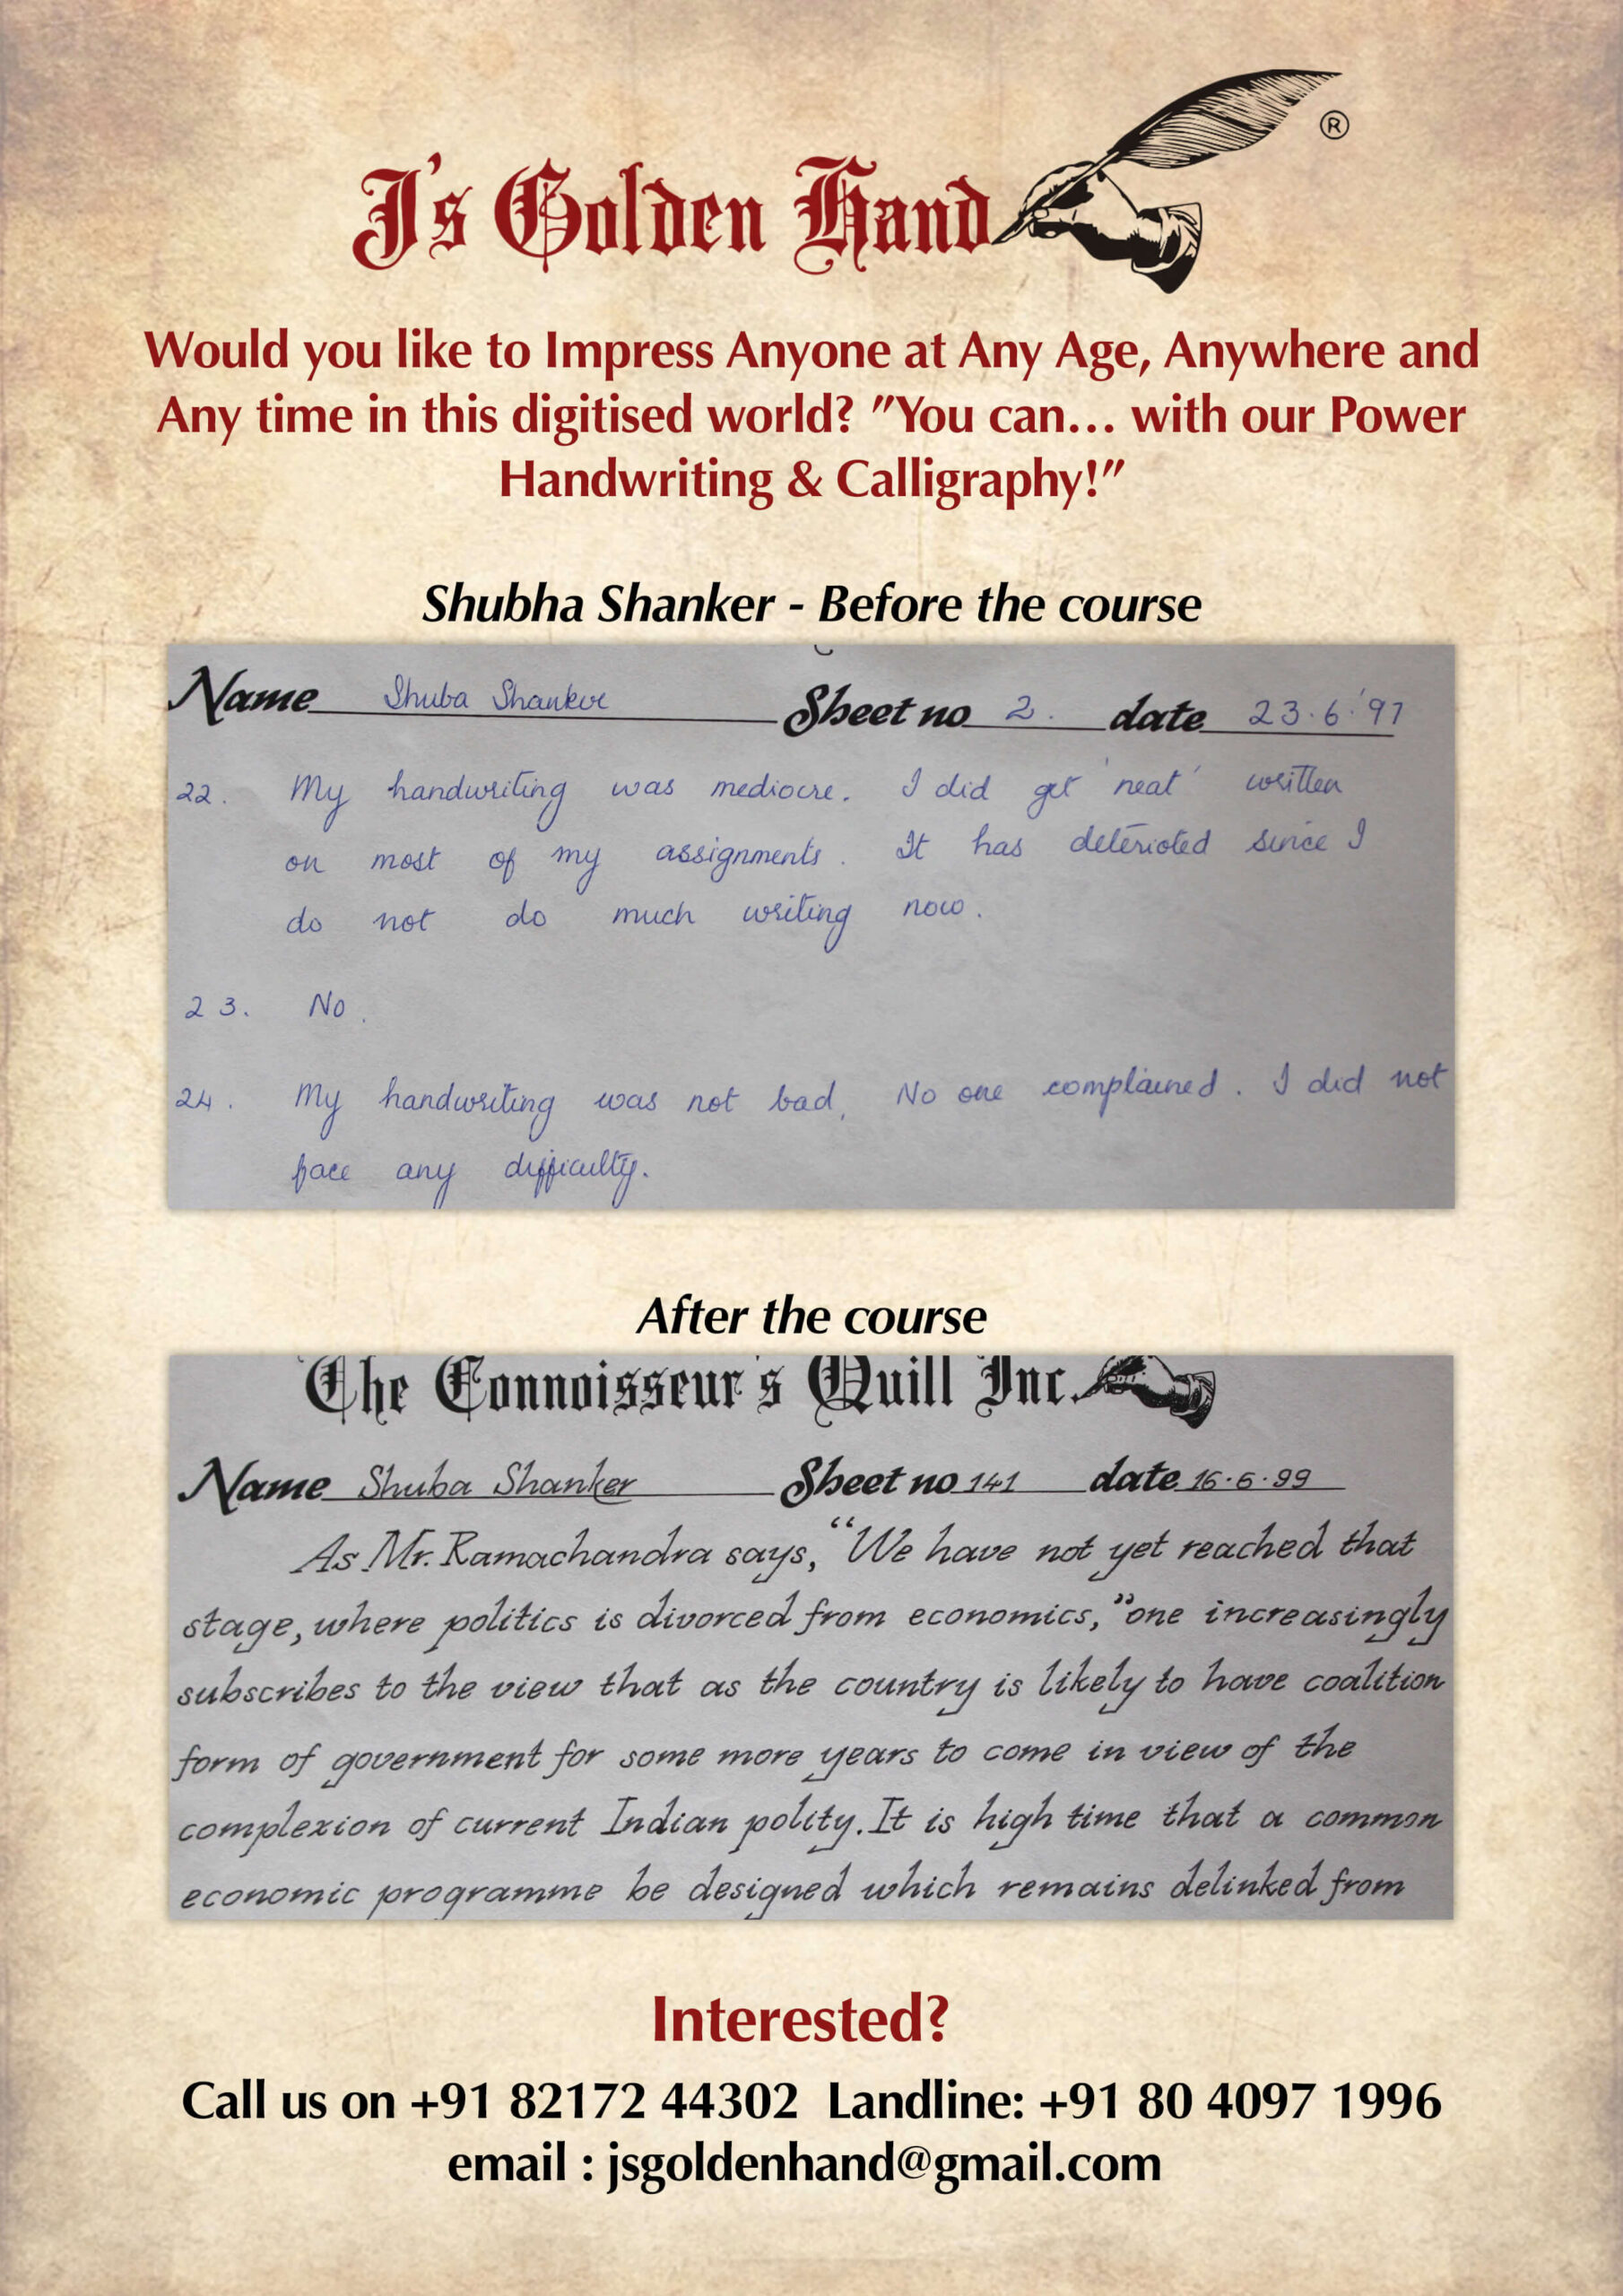 J's Golden Hand ®
Would you like to Impress Anyone at Any Age, Anywhere and
Any time in this digitised world? "You can... with our Power
Handwriting & Calligraphy!"
Shubha Shanker - Before the course
Name Shuba Shanker Sheet no 2. date 23.6.'97
22. My handwriting was mediocre. I did get 'neat' written
on most of my assignments. It has deterioted since I
do not do much writing now.
23. No.
24. My handwriting was not bad. No one complained. I did not
face any difficulty.
After the course
The Connoisseur's Quill Inc.
Name Shuba Shanker Sheet no 141 date 16.6.99
As Mr. Ramachandra says, "We have not yet reached that
stage, where politics is divorced from economics," one increasingly
subscribes to the view that as the country is likely to have coalition
form of government for some more years to come in view of the
complexion of current Indian polity. It is high time that a common
economic programme be designed which remains delinked from
Interested?
Call us on +91 82172 44302 Landline: +91 80 4097 1996
email : jsgoldenhand@gmail.com